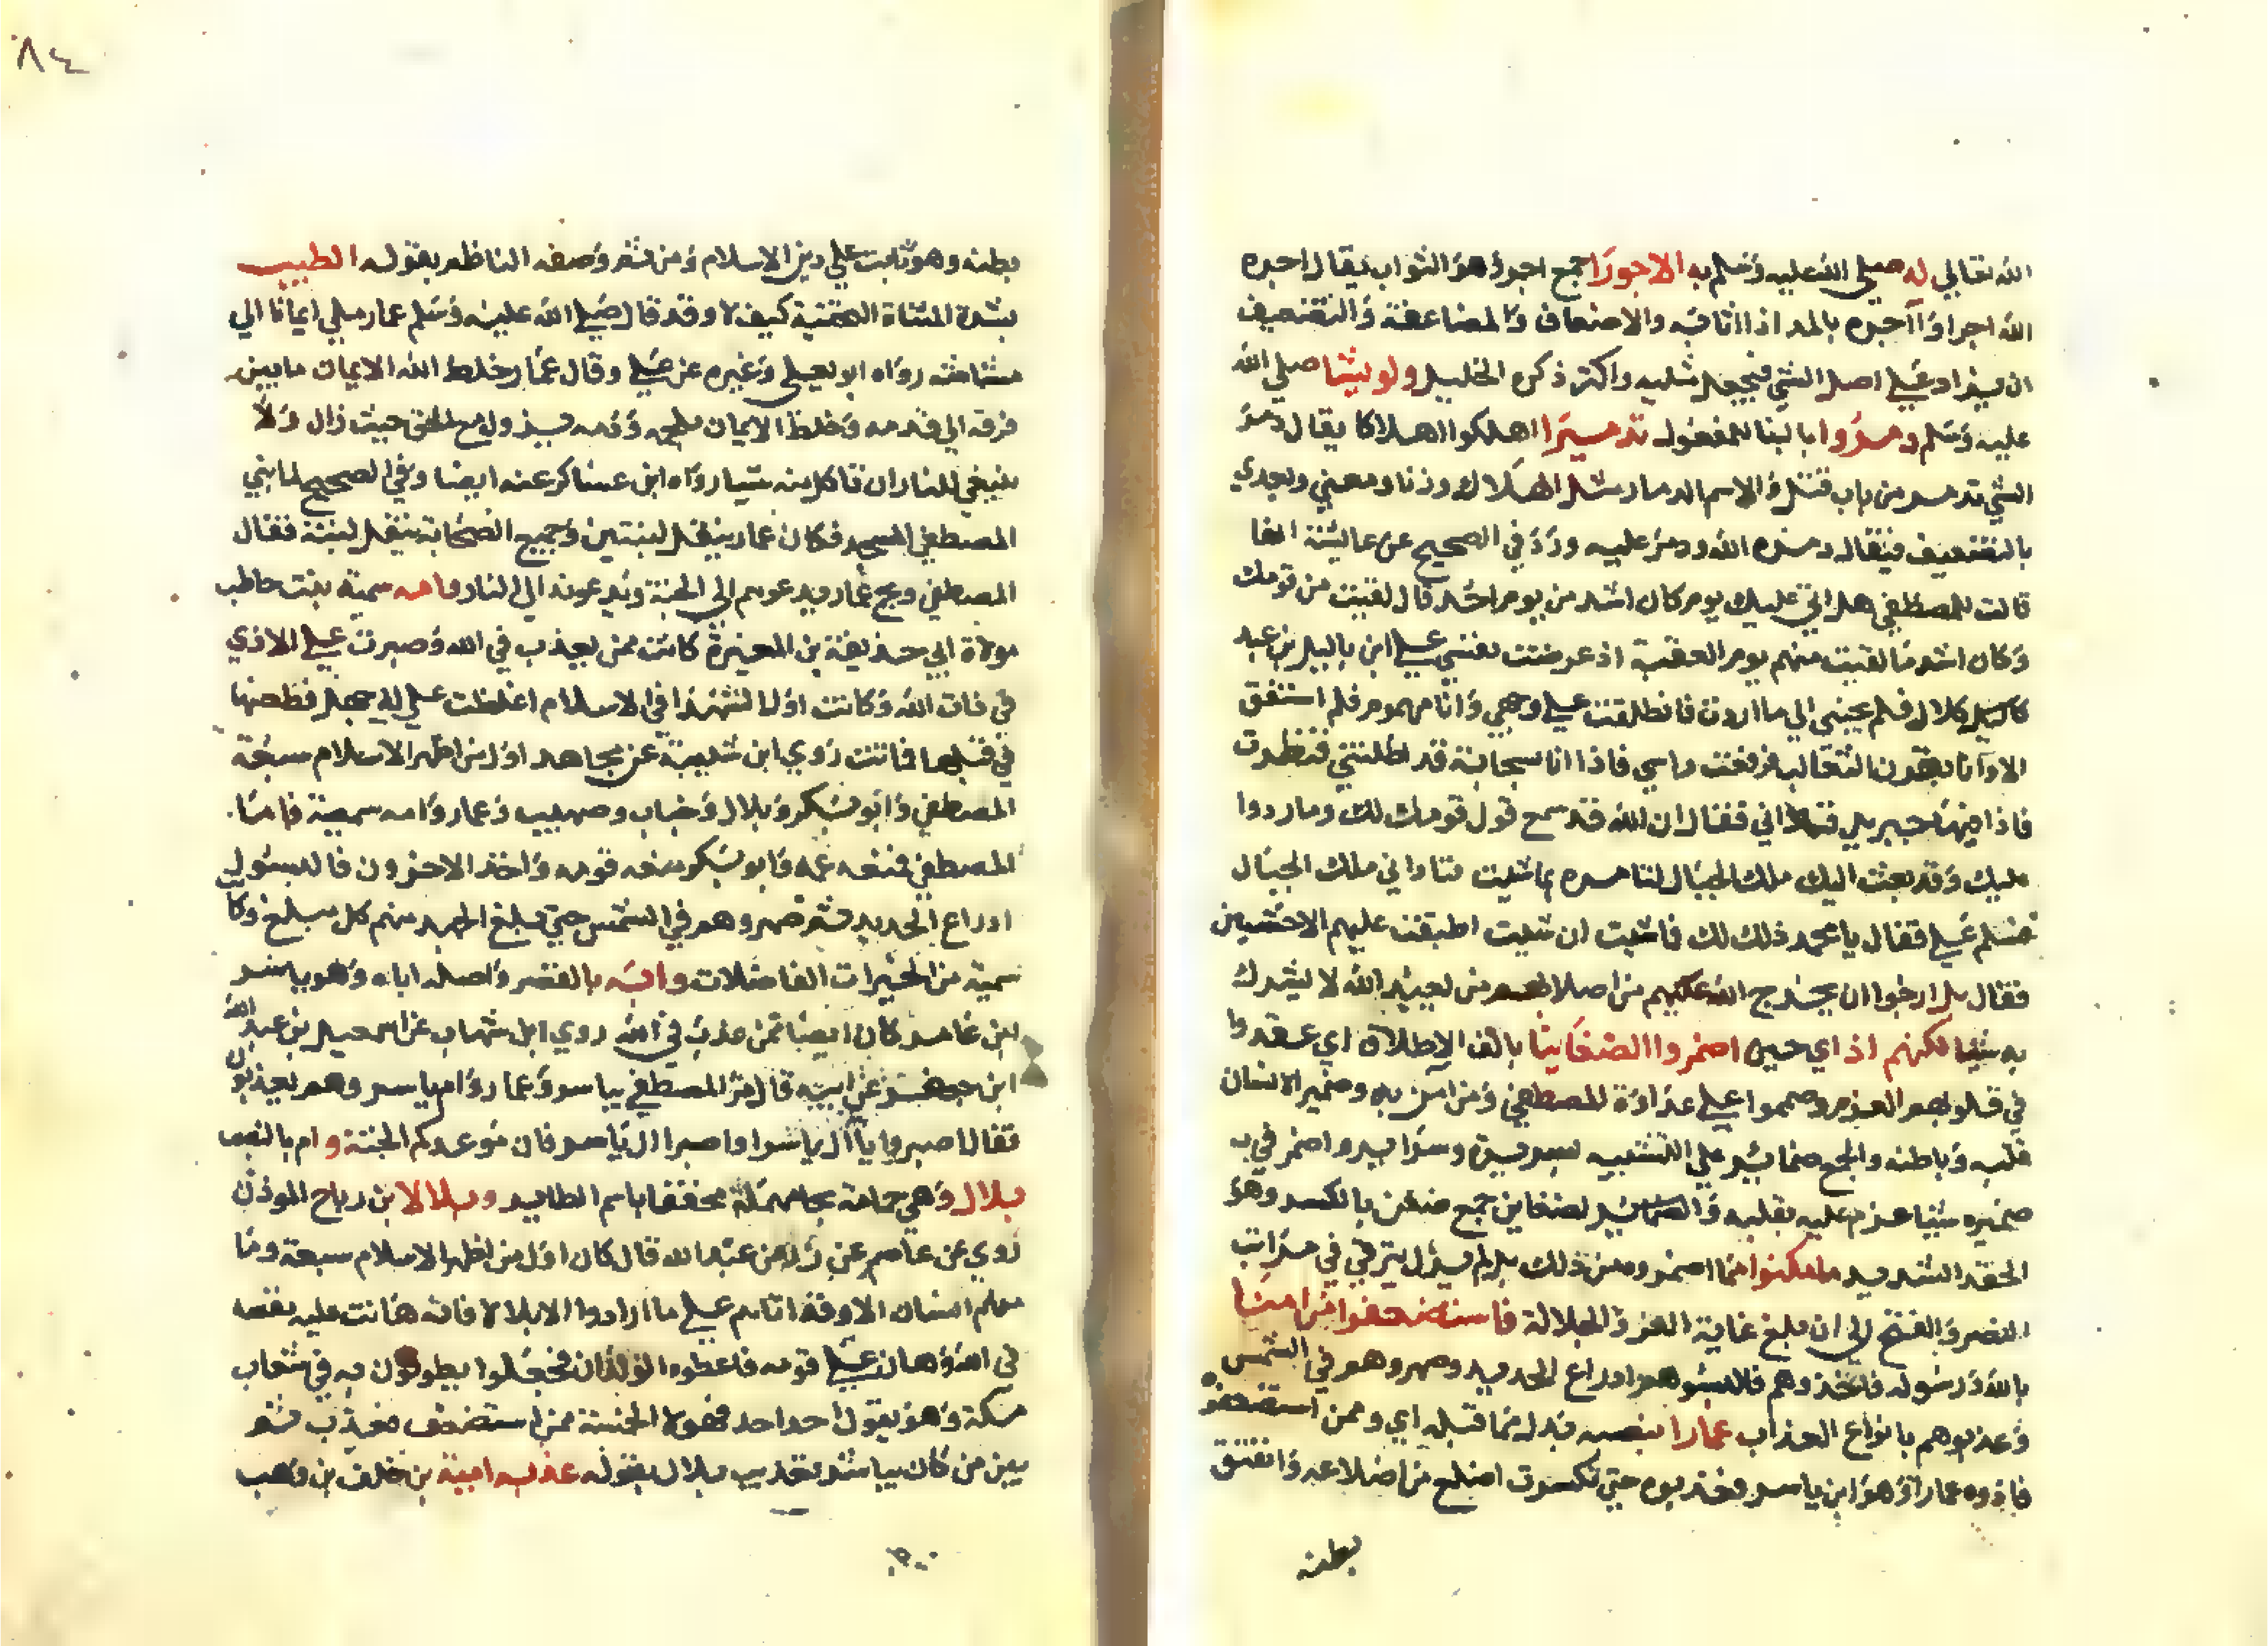 الله تعالي له صلي الله عليه وسلم به الاجورا جمع اجر وهو الثواب يقال اجره
الله اجرا وآجره بالمد اذا اثابه والاضعاف والمضاعفة والتضعيف
ان يزاد علي اصل الشي فيجعل مثليه واكثر ذكره الخليل ولو يشا صلي الله
عليه وسلم دمروا بالبنا للمفعول تدميرا اهلكوا اهلاكا يقال دمر
الشي يدمر من باب قتل والاسم الدمار مثل الهلاك وزنا ومعني ويعدي
بالتضعيف فيقال دمره الله ودمر عليه ورد في الصحيح عن عائشة انها
قالت للمصطفي هل اتي عليك يوم كان اشد من يوم احد قال لقيت من قومك
وكان اشد ما لقيت منهم يوم العقبة اذ عرضت نفسي علي ابن ياليل بن عبد
كاليل كلال فلم يجبني الي ما اردت فانطلقت علي وجهي وانا مهموم فلم استفق
الا وانا بقرن الثعالب فرفعت راسي فاذا انا سحابة قد اظلتني فنظرت
فاذا فيها جبريل فناداني فقال ان الله قد سمع قول قومك لك وما ردوا
عليك وقد بعث اليك ملك الجبال لتامره بما شيت فناداني ملك الجبال
فسلم علي فقال يا محمد ذلك لك فما شيت ان شيت اطبقت عليهم الاخشبين
فقال بل ارجوا ان يخرج الله من اصلابهم من يعبد الله لا يشرك
به شيا لكنهم اذ اي حين اضمروا الضغاينا بالف الاطلاق اي عقدوا
في قلوبهم العزم وصمموا علي عداوة للمصطفي ومن امن به وضمير الانسان
قلبه وباطنه والجمع ضماير علي التشبيه بسريرة وسراير واضمر في
ضميره شيا عزم عليه بقلبه والضغاين جمع ضغن بالكسر وهو
الحقد الشديد ما مكنوا مما اضمروه من ذلك بل لم يزل يترقي في مراتب
النصر والفتح الي ان بلغ غاية العز والجلالة فاستضعفوا من امنا
بالله ورسوله فاخذوهم فالبسوهم ادراع الحديد وصهروهم في الشمس
وعذبوهم بانواع العذاب عمارا بنصبه بدل مما قبله اي وممن استضعفوه
فاذوه عمار وهو ابن ياسر فعذبوه حتي تكسرت اضلع من اضلاعه وانفتق
بطنه
٨٤
بطنه وهو ثابت علي دين الاسلام ومن ثم وصفه الناظم بقوله الطيب
بشدة المثناة التحتية كيف لا وقد قال صلي الله عليه وسلم عمار ملي ايمانا الي
مشاشه رواه ابو يعلي وغيره عن علي وقال عمار خلط الله الايمان ما بين
قرنه الي قدمه وخلط الايمان بلحمه ودمه يزول مع الحق حيث زال ولا
ينبغي للنار ان تاكل منه شيا رواه ابن عساكر عنه ايضا وفي الصحيح لما بني
المصطفي المسجد فكان عمار ينقل لبنتين وجميع الصحابة ينقل لبنة فقال
المصطفي ويح عمار يدعوهم الي الجنة ويدعونه الي النار وامه سمية بنت خاطب
مولاة ابي حذيفة بن المغيرة كانت ممن يعذب في الله وصبرت علي الاذي
في ذات الله وكانت اول الشهدا في الاسلام اغلظت علي ابي جهل فطعنها
في قبلها فماتت روي ابن شيبة عن مجاهد اول من اظهر الاسلام سبعة
المصطفي وابو بكر وبلال وخباب وصهيب وعمار وامه سمية فاما
المصطفي فمنعه عمه وابو بكر منعه قومه واخذ الاخرون فالبسوا
ادراع الحديد ثم صهروهم في الشمس حتي بلغ الجهد منهم كل مبلغ وكا
سمية من الخيرات الفاضلات وابه بالقصر واصله اباه وهو ياسر
بن عامر كان ايضا ممن عذب في الله روي ابن شهاب عن اسمعيل بن عبد الله
ابن جعفر عن ابيه قال مر المصطفي بياسر وعمار وام ياسر وهم يعذبون
فقال اصبروا يا آل ياسر اصبرا آل ياسر فان موعدكم الجنة وام بالنصب
بلال وهي حمامة بحا مهملة مخففا باسم الطاير وبلالا بن رباح الموذن
روي عن عاصم عن زر عن عبد الله قال كان اول من اظهر الاسلام سبعة وما
منهم انسان الا وقد اتاهم علي ما ارادوا الا بلالا فانه هانت عليه نفسه
في الله وهان علي قومه فاعطوه الولدان فجعلوا يطوفون به في شعاب
مكة وهو يقول احد احد فهولا الخمسة ممن استضعف فعذب ثم
بين من كان يباشر تعذيب بلال بقوله عذبه امية بن خلف بن وهب